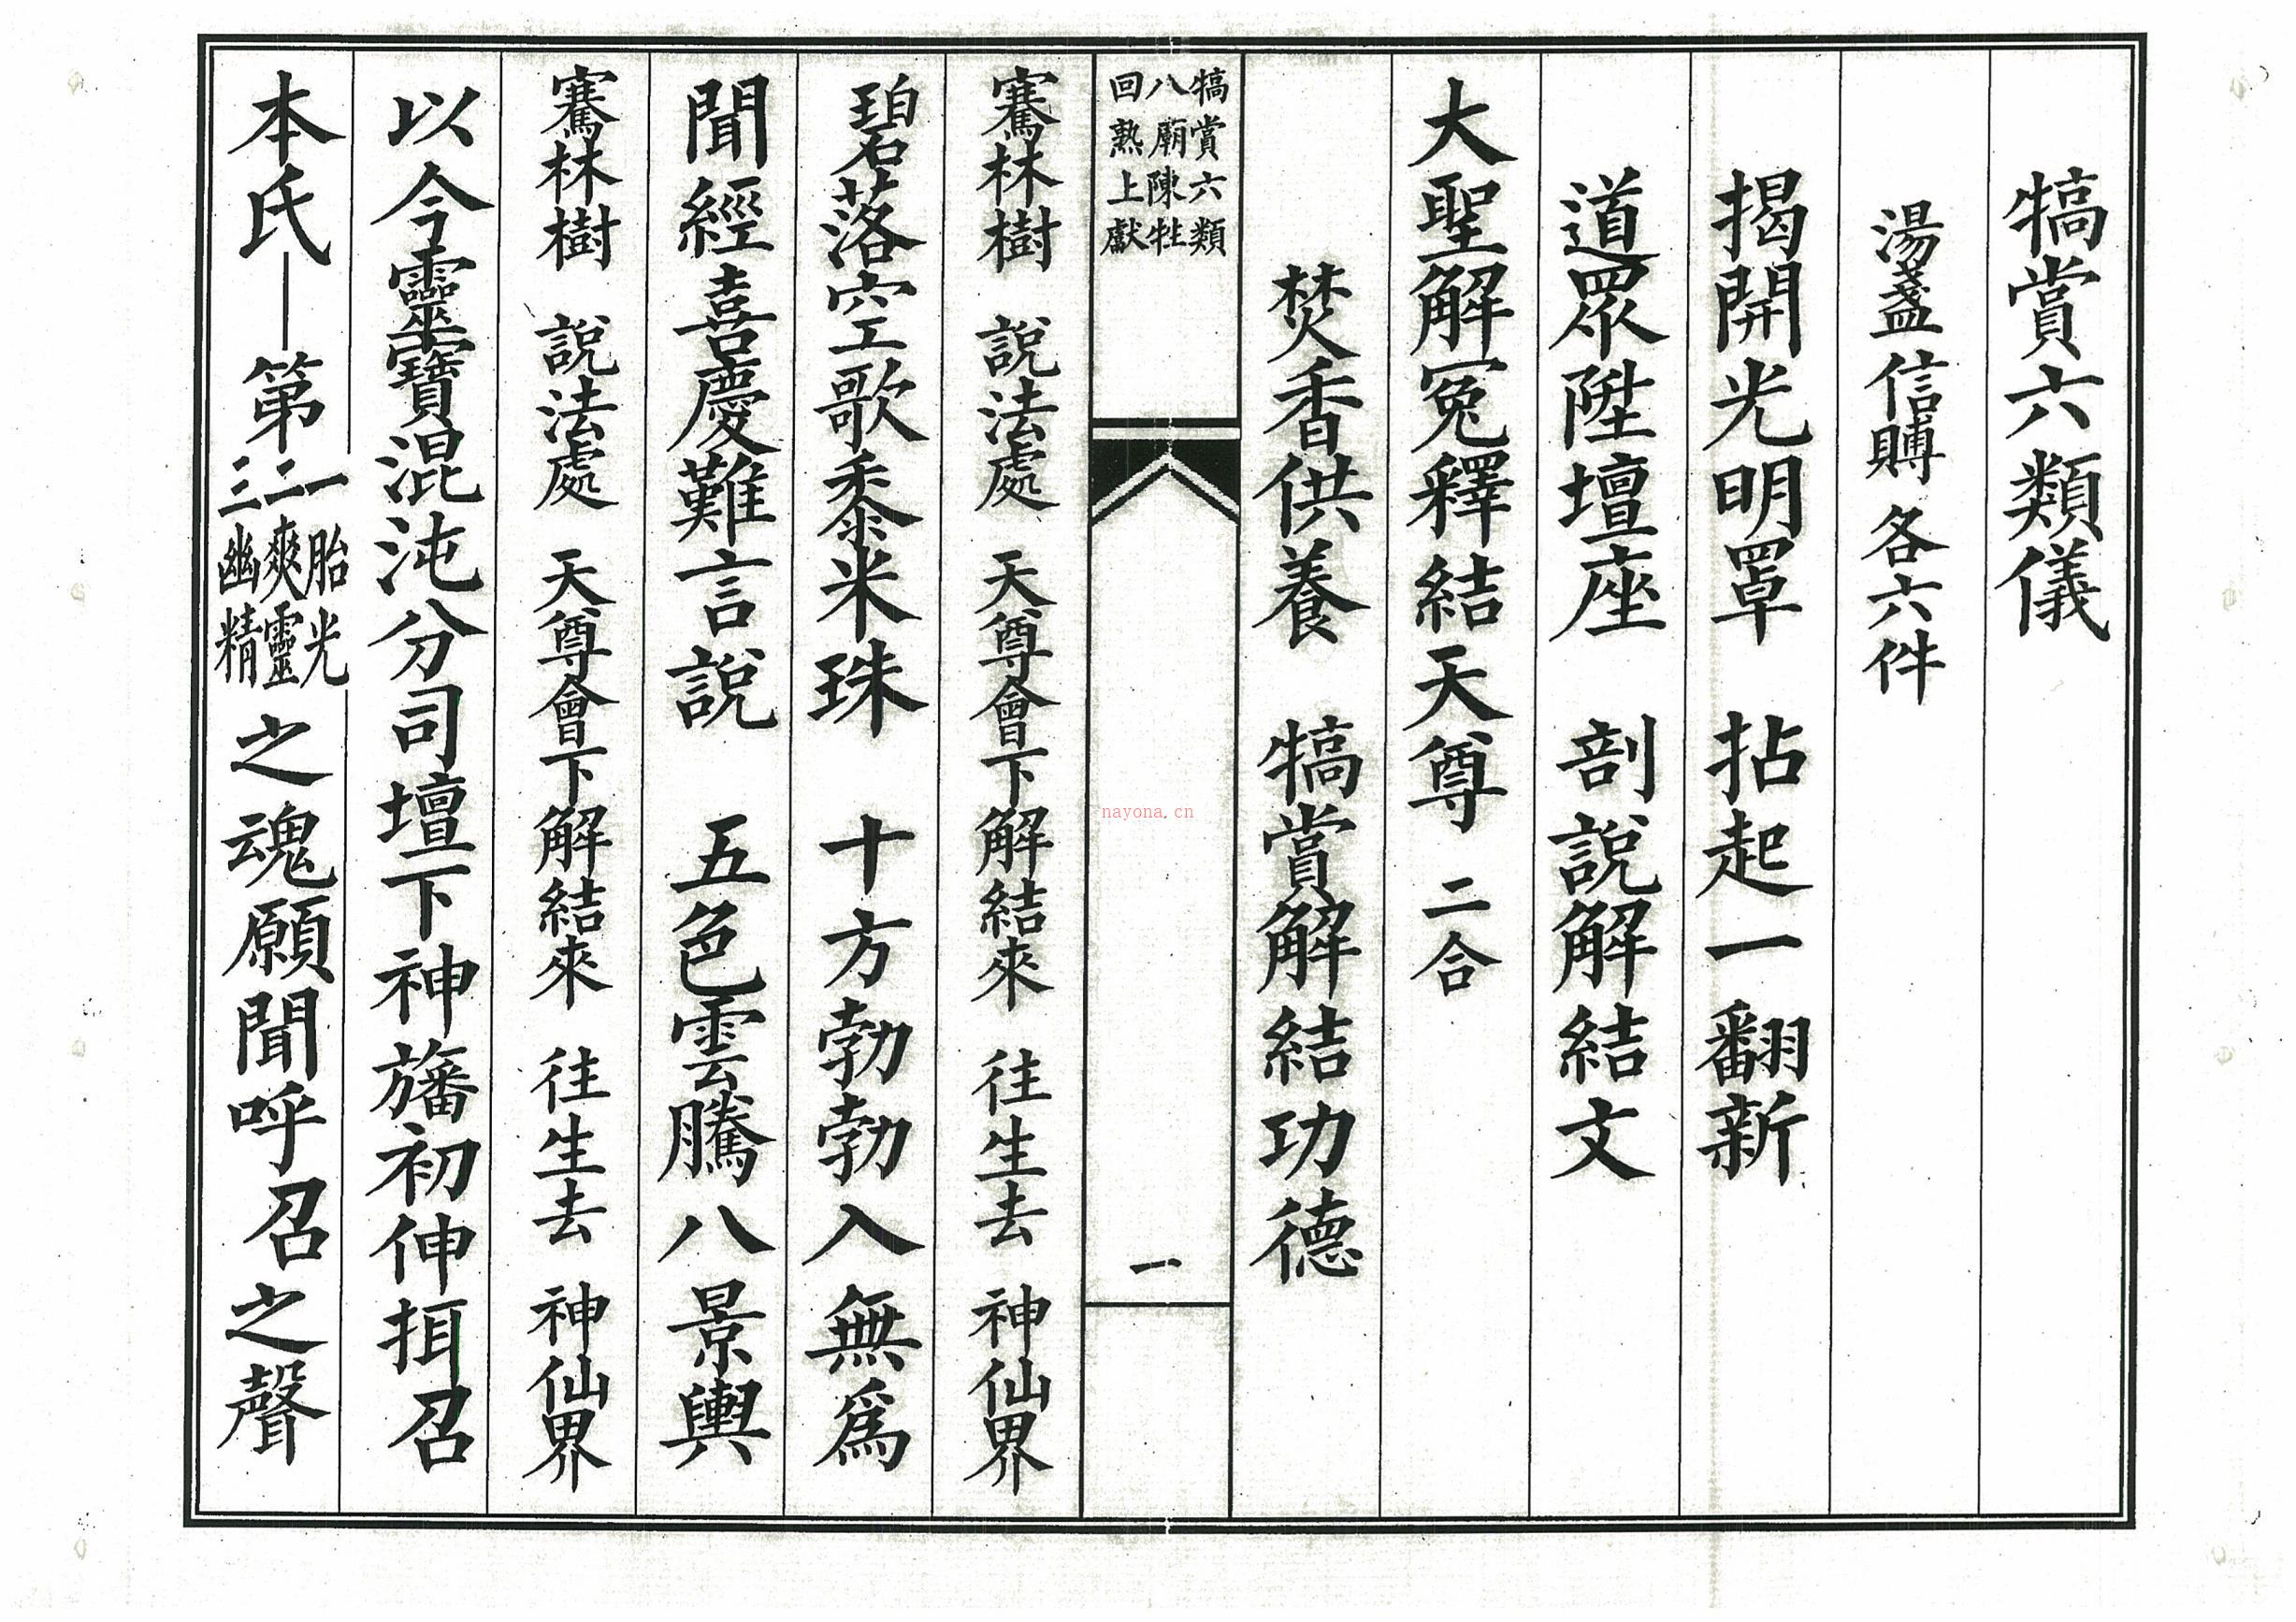 犒賞六類儀
湯盞信賻各六件
揭開光明罩　拈起一翻新
道眾陞壇座　剖說解結文
大聖解冤釋結天尊二合
焚香供養　犒賞解結功德
犒賞六類
八廟陳牲
回熟上獻
一
騫林樹　說法處　天尊會下解結來　往生去　神仙界
碧落空歌黍米珠　十方勃勃入無為
聞經喜慶難言說　五色雲騰八景輿
騫林樹　說法處　天尊會下解結來　往生去　神仙界
以今靈寶混沌分司壇下神旛初伸挕召
本氏｜第一胎光二爽靈三幽精之魂願聞呼召之聲
nayona.cn